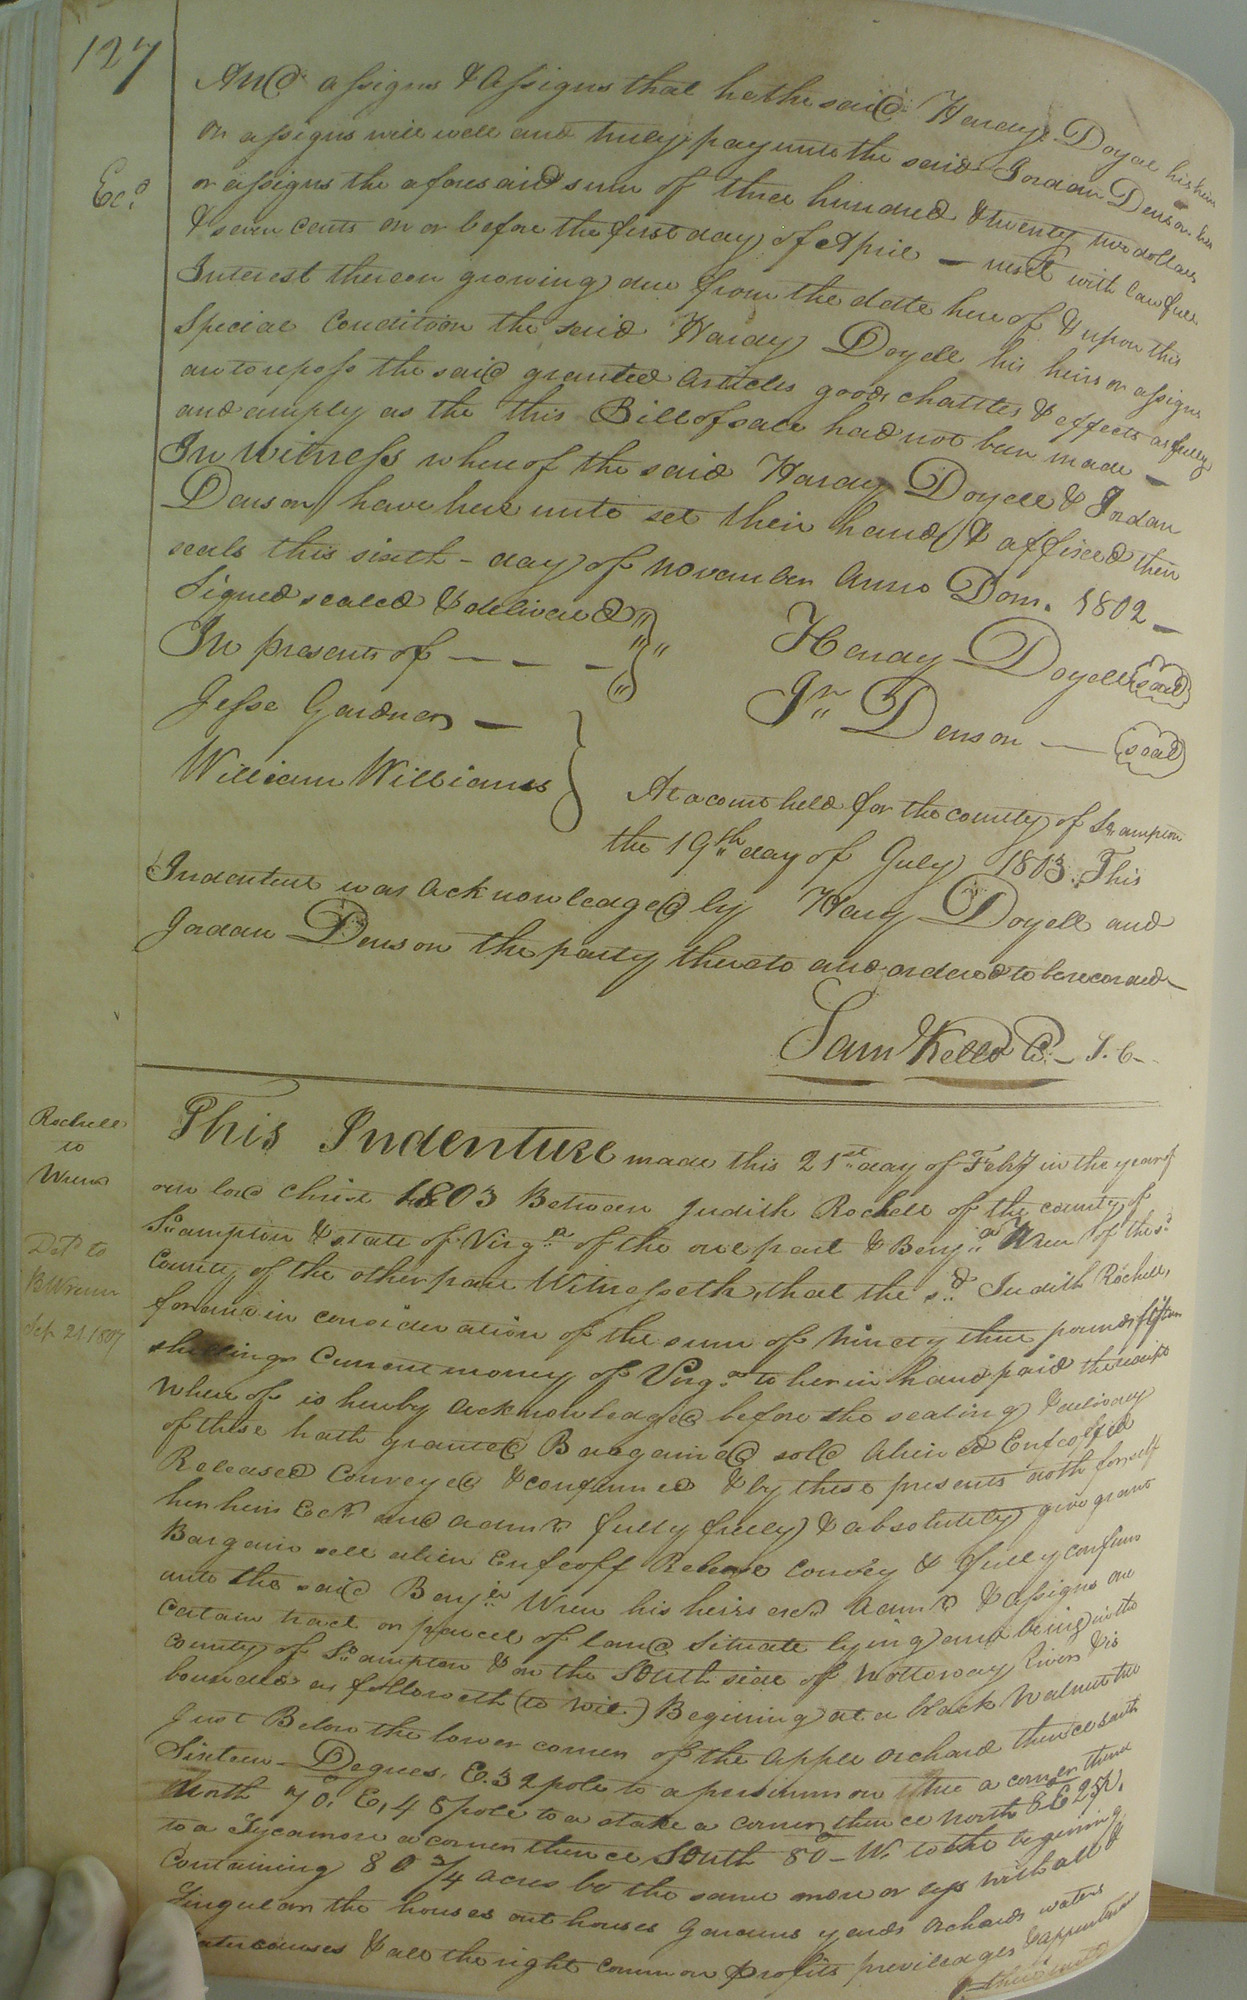 127
And assigns & assigns that he the said Hardy Doyal his heirs
or assigns will well and truly pay unto the said Jordan Denson his
Ecd.
or assigns the aforesaid sum of three hundred & twenty two dollars
& seven cents on or before the first day of April — next with lawfull
Interest thereon growing due from the date here of & upon this
Special Condition the said Hardy Doyell his heirs or assigns
are to reposs the said granted articles goods chattles & effects as fully
and amply as the this Bill of sale had not been made —
In Witness where of the said Hardy Doyell & Jordan
Denson have here unto set their hands & affixed their
seals this sixth – day of November Anno Dom. 1802 —
Signed sealed & delivered
In presents of — — —
Hardy Doyell seal
Jesse Gardner —
Jn Denson — seal
William Williams
At a court held for the county of So.ampton
the 19th day of July 1803. This
Indenture was acknowledged by Hary Doyell and
Jordan Denson the party thereto and ordered to be recorded —
Sam Kello C. – S. C –
Rochell
to
Wrenn
Deld to
B Wrenn
Sep 21 1807
This Indenture made this 21st day of Feby in the year of
our lord Christ 1803 Between Judith Rochell of the county of
So.ampton & state of Virga of the one part & Benja Wren of the sd
County of the other part Witnesseth, that the sd Judith Rochell,
for and in consideration of the sum of Ninety three pounds fifteen
shillings Current money of Virga to her in hand paid the receipt
Where of is hereby acknowledged before the sealing & delivery
of these hath granted Bargained sold aliened Enfeoffed
Released Conveyed & confirmed & by these presents doth for self
her heirs Ecrs and admrs fully freely & absolutely give grant
Bargain sell alien Enfeoff Release convey & fully confirm
unto the said Benjn Wren his heirs admrs & assigns one
certain tract or parcel of land Situate lying and being in the
county of So.ampton & on the South side of Nottoway River & is
bounded as followeth (to wit) Begining at a black Walnut tree
Just Below the lower corner of the apple orchard thence south
Sixteen – Degrees, E. 32 pole to a persimmon tree a corner thence
North 70. E, 48 pole to a stake a corner, thence North
to a Sycamore a corner thence South 80 – W. to the begining
Containing 80 3/4 acres be the same more or less with all &
Singular the houses out houses Gardens yards orchards waters
Watercourses & all the right common profits previledges & appurtenances